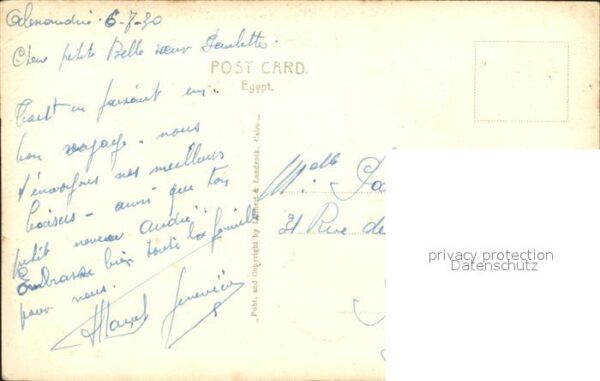 Alexandrie 6-7-30
Chère petite Belle sœur Paulette.
POST CARD.
Egypt.
Tout en faisant un
bon voyage - nous
t'envoyons nos meilleurs
baisers - ainsi que ton
petit neveu André.
Embrasse bien toute la famille
pour nous.
Marcel Geneviève
Publ. and Copyright by Lehnert & Landrock, Cairo.
Melle Pa
21 Rue de
privacy protection
Datenschutz